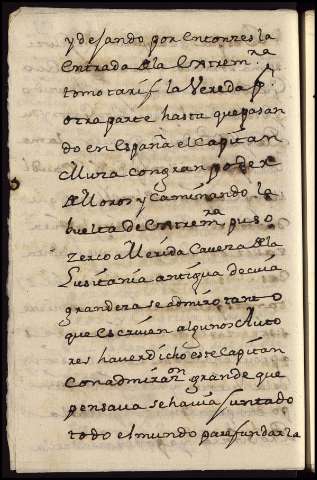 y dejando por entonzes la
entrada de la Extrem.ra
tomo tarif la Vereda pr.
otra parte hasta que pasan
do en España el Capitan
Muza con gran poder
de Moros y Caminando la
buelta de Extrem.ra puso
zerco a Merida Caveza de la
Lusitania antigua de cuia
grandeza se admiro tanto
que escriven algunos Auto
res haver dicho este Capitan
con admirazon grande que
pensava se havia juntado
todo el mundo para fundarla